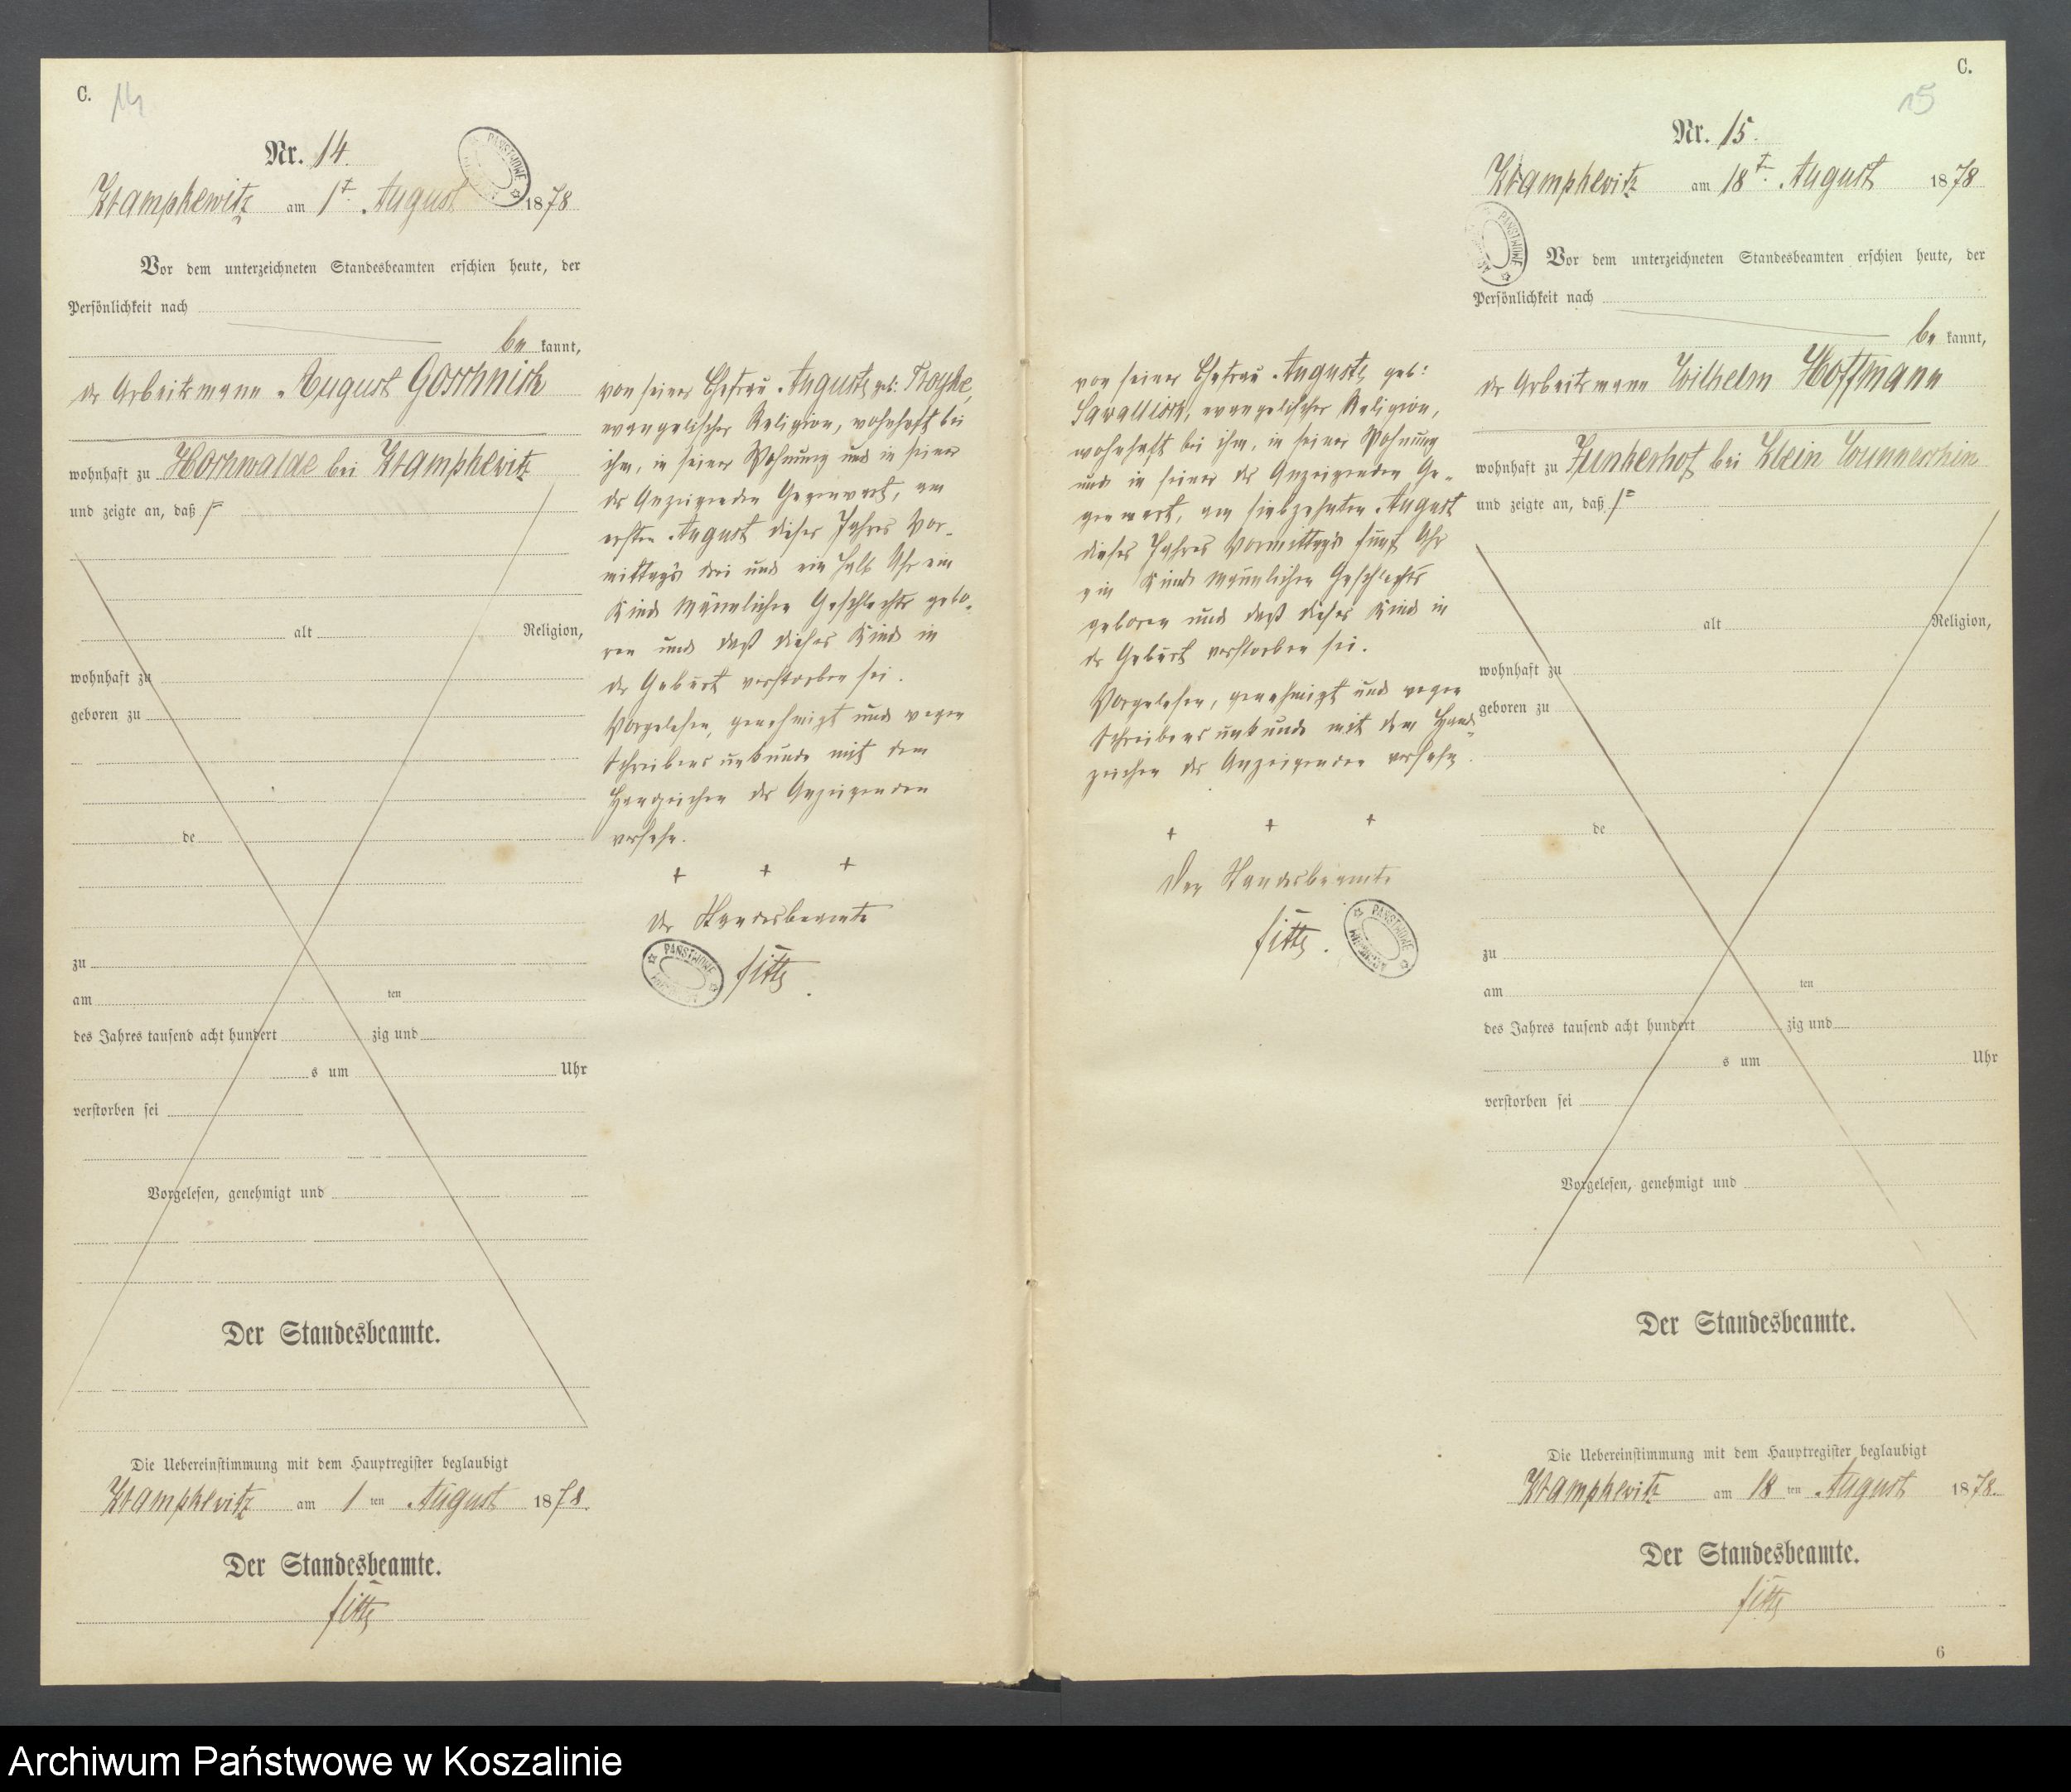 C. 14
Nr. 14.
PAŃSTWOWE
Krampkewitz am 1t August 1878
Vor dem unterzeichneten Standesbeamten erschien heute, der
Persönlichkeit nach
be kannt,
der Arbeitsmann August
wohnhaft zu Hornwalde bei Krampkewitz
und zeigte an, daß
alt Religion,
wohnhaft zu
geboren zu
de
zu
am ten
des Jahres tausend acht hundert zig und
s um Uhr
verstorben sei
Vorgelesen, genehmigt und
Der Standesbeamte.
Die Uebereinstimmung mit dem Hauptregister beglaubigt
Krampkewitz am 1 ten August 1878.
Der Standesbeamte.
von seiner Ehefrau Auguste geb:
evangelischer Religion, wohnhaft bei
ihm, in seiner Wohnung und in seiner
des Anzeigenden Gegenwart, am
ersten August dieses Jahres Vor-
mittags drei und ein halb Uhr ein
Kind männlichen Geschlechts gebo-
ren und daß dieses Kind in
der Geburt verstorben sei.
Vorgelesen, genehmigt und wegen
Schreibensunkunde mit dem
Handzeichen des Anzeigenden
versehn.
+ + +
Der Standesbeamte
PAŃSTWOWE
von seiner Ehefrau Auguste geb:
evangelischer Religion,
wohnhaft bei ihm, in seiner Wohnung
und in seiner des Anzeigenden Ge-
genwart, am siebzehnten August
dieses Jahres Vormittags fünf Uhr
ein Kind männlichen Geschlechts
geboren und daß dieses Kind in
der Geburt verstorben sei.
Vorgelesen, genehmigt und wegen
Schreibensunkunde mit dem Hand-
zeichen des Anzeigenden versehn.
+ + +
Der Standesbeamte
PAŃSTWOWE
C.
15
Nr. 15.
Krampkewitz am 18t August 1878
PAŃSTWOWE
Vor dem unterzeichneten Standesbeamten erschien heute, der
Persönlichkeit nach
be kannt,
der Arbeitsmann Wilhelm Hoffmann
wohnhaft zu Junkerhof bei Klein Wunneschin
und zeigte an, daß
alt Religion,
wohnhaft zu
geboren zu
de
zu
am ten
des Jahres tausend acht hundert zig und
s um Uhr
verstorben sei
Vorgelesen, genehmigt und
Der Standesbeamte.
Die Uebereinstimmung mit dem Hauptregister beglaubigt
Krampkewitz am 18 ten August 1878.
Der Standesbeamte.
6
Archiwum Państwowe w Koszalinie